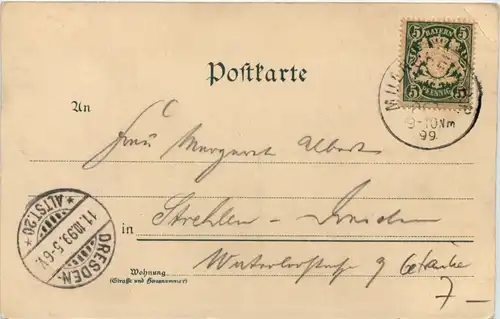 BAYERN
5 5
5 PFENNIG 5
9-10 Nm
99
Postkarte
An
Frau Margareth Albert
in
Strehlen - Dresden
9
7-
Wohnung
(Straße und Hausnummer)
DRESDEN-
* ALTST. 26 *
11.10.99. 5-6 V.